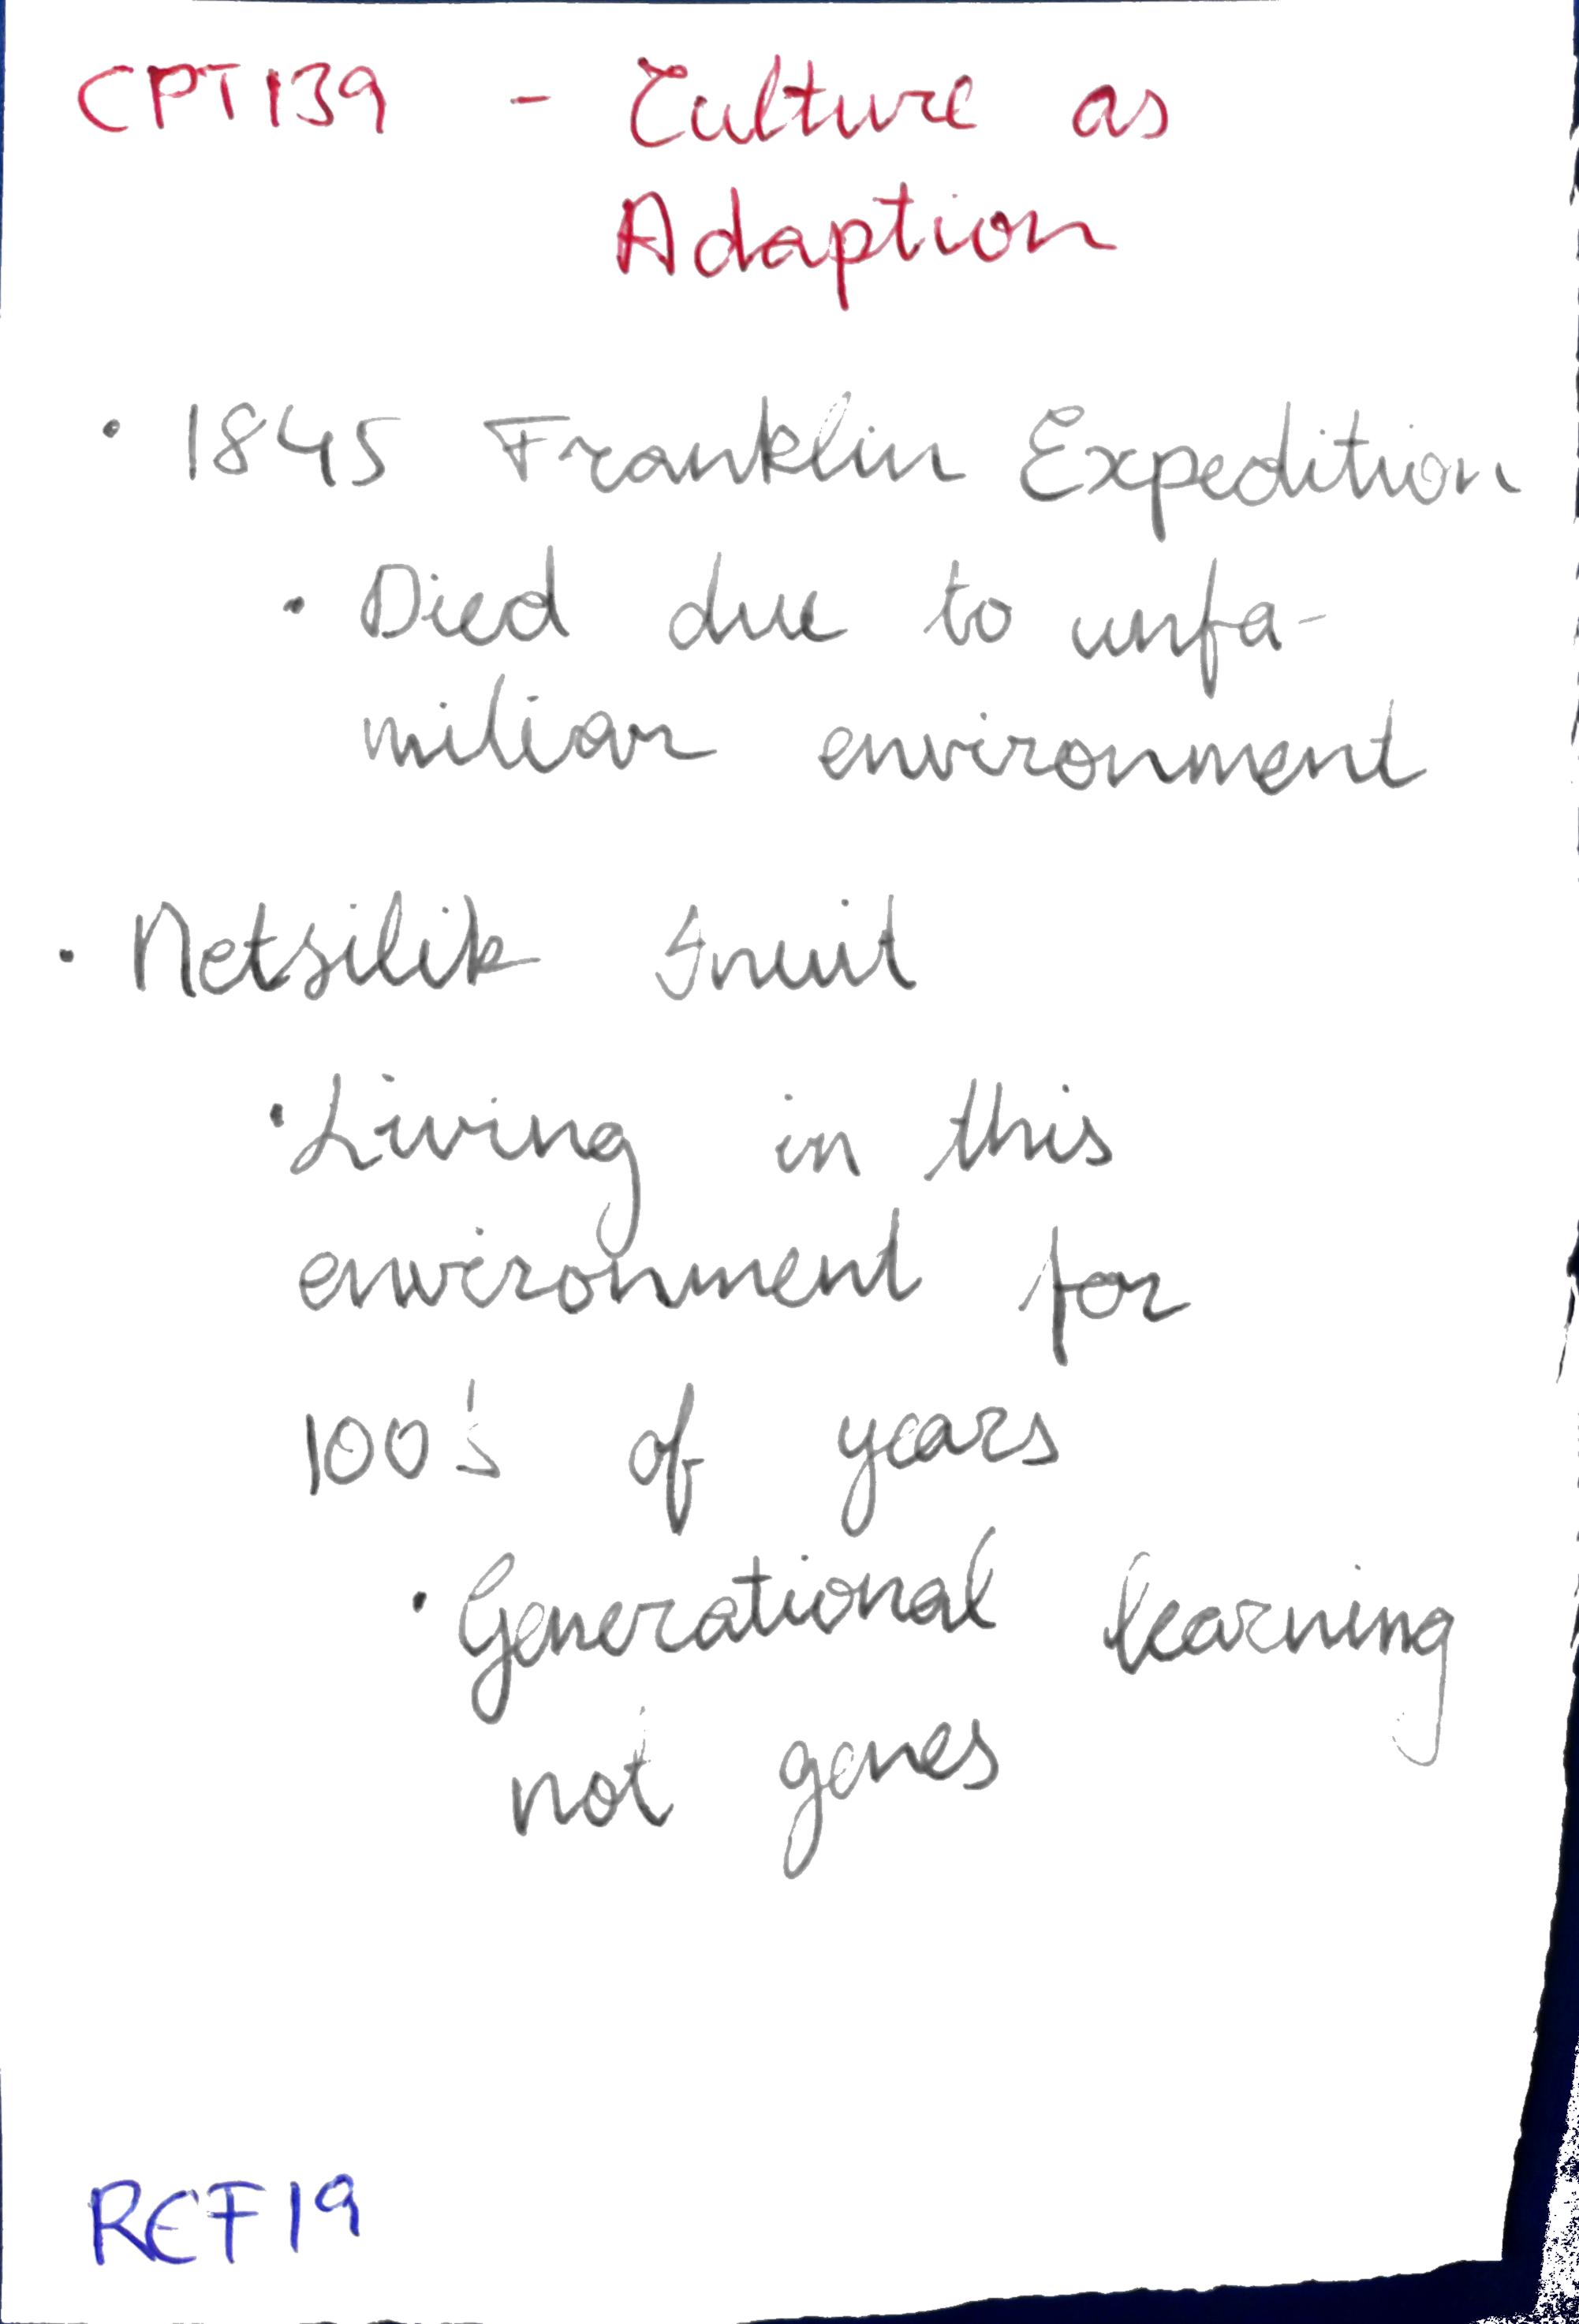 CPT139 - Culture as
Adaption
• 1845 Franklin Expedition
• Died due to unfa-
miliar environment
• Netsilik Inuit
• Living in this
environment for
100's of years
• Generational learning
not genes
REF19